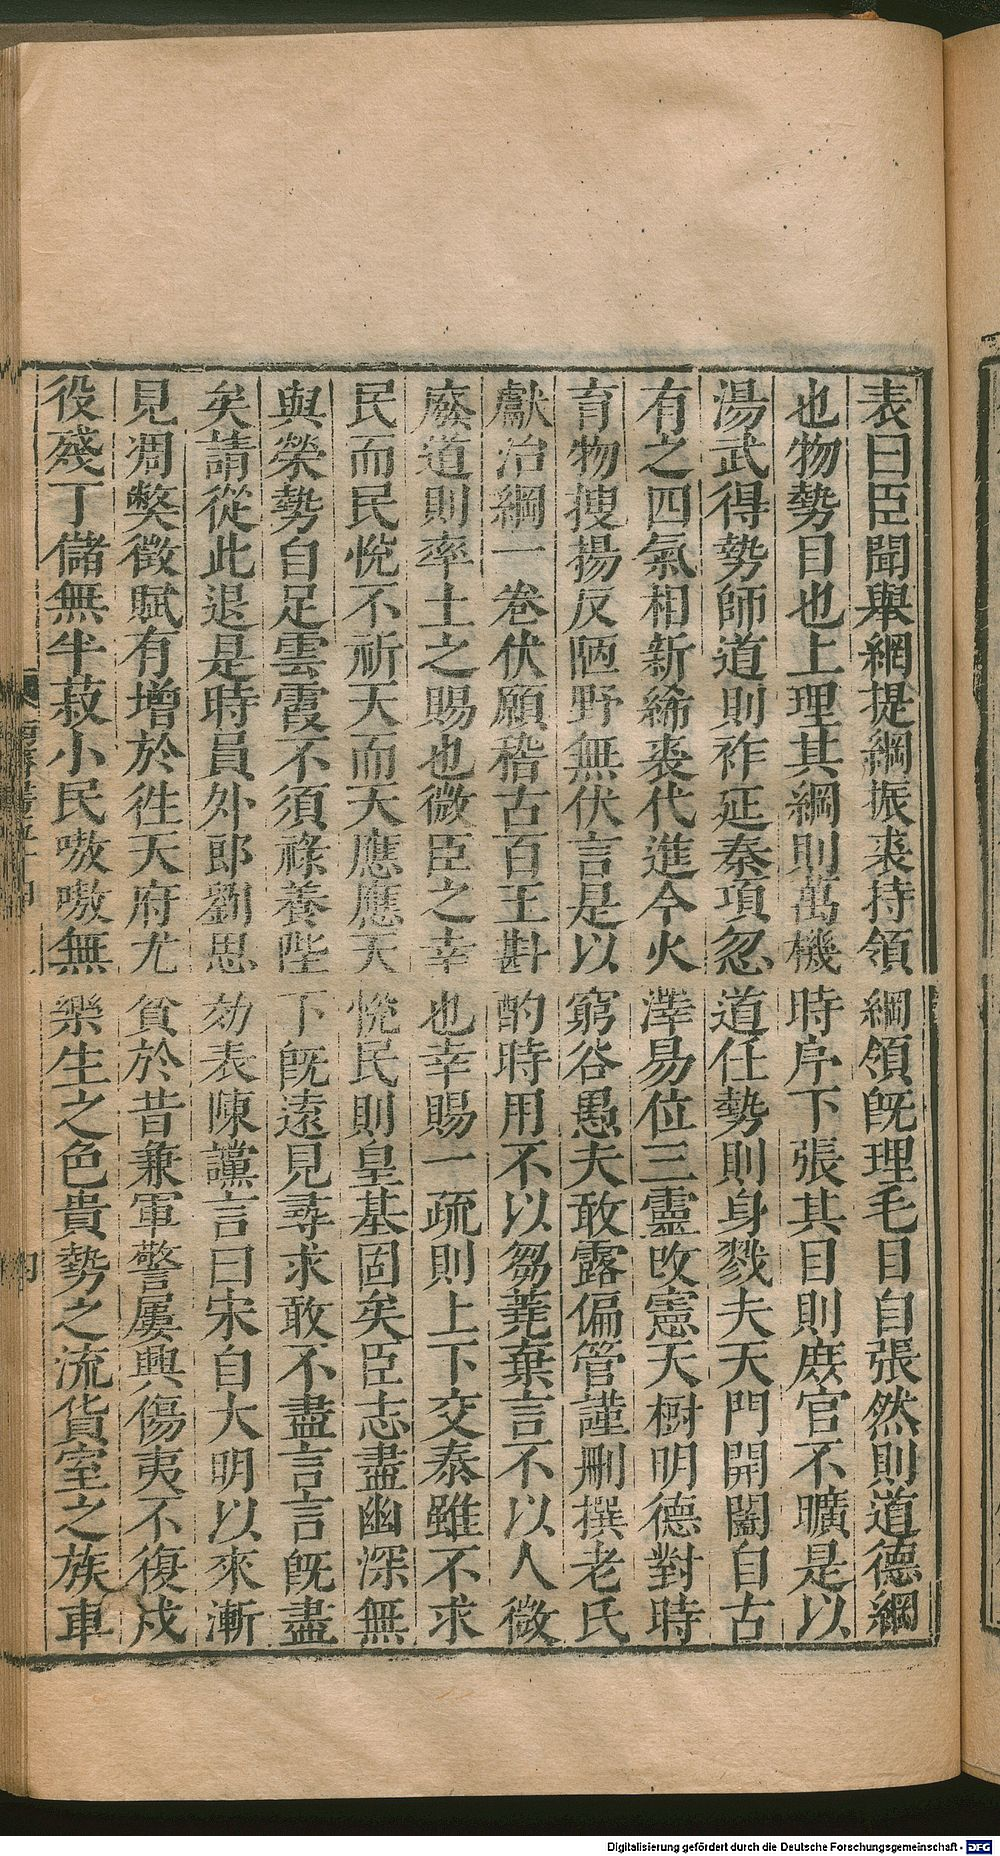 表曰臣聞舉網提綱振裘持領綱領旣理毛目自張然則道德綱
也物勢目也上理其綱則萬機時序下張其目則庶官不曠是以
湯武得勢師道則祚延秦項忽道任勢則身戮夫天門開闔自古
有之四氣相新絺裘代進今火澤易位三靈改憲天樹明德對時
育物搜揚反陋野無伏言是以窮谷愚夫敢露偏管謹刪撰老氏
獻治綱一卷伏願稽古百王斟酌時用不以芻蕘棄言不以人微
廢道則率土之賜也微臣之幸也幸賜一疏則上下交泰雖不求
民而民悅不祈天而天應應天悅民則皇基固矣臣志盡幽深無
與榮勢自足雲霞不須祿養陛下旣遠見尋求敢不盡言言旣盡
矣請從此退是時員外郎劉思効表陳讜言曰宋自大明以來漸
見凋獘徵賦有增於徃天府尤貧於昔兼軍警屢興傷夷不復戍
役殘丁儲無半菽小民嗷嗷無樂生之色貴勢之流貨室之族車
Digitalisierung gefördert durch die Deutsche Forschungsgemeinschaft - DFG